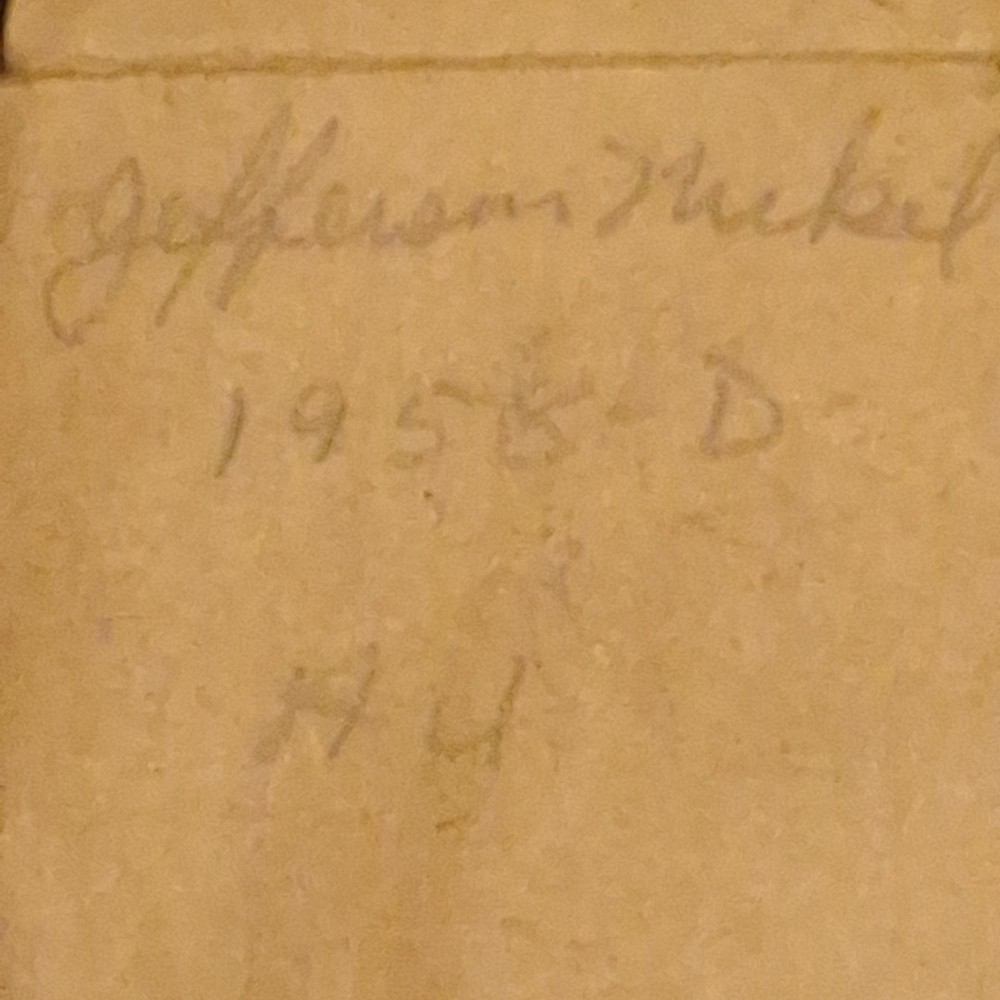 Jefferson Nickel
1955-D